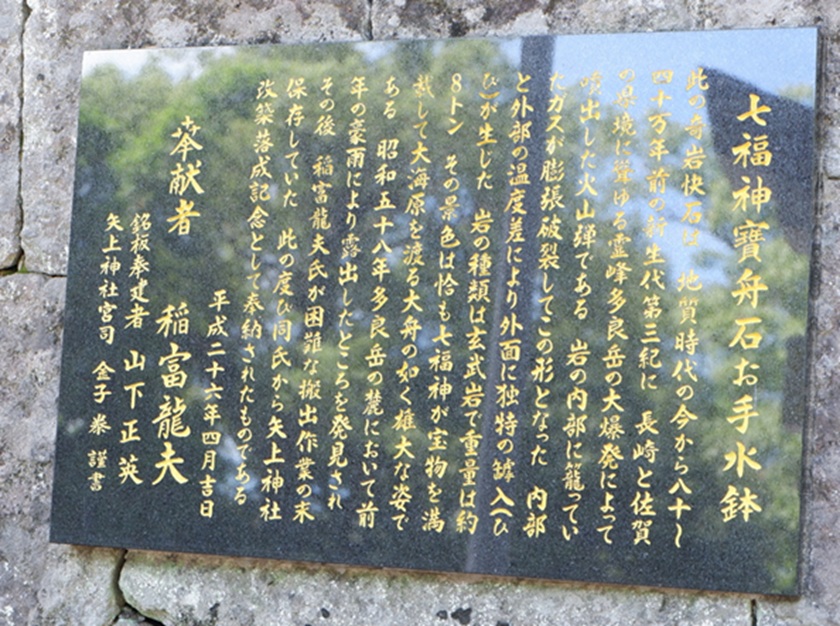 七福神寶舟石お手水鉢
此の奇岩快石は 地質時代の今から八十〜
四十万年前の新生代第三紀に 長崎と佐賀
の県境に聳ゆる霊峰多良岳の大爆発によって
噴出した火山弾である 岩の内部に籠ってい
たガスが膨張破裂してこの形となった 内部
と外部の温度差により外面に独特の罅入(ひ
び)が生じた 岩の種類は玄武岩で重量は約
8トン その景色は恰も七福神が宝物を満
載して大海原を渡る大舟の如く雄大な姿で
ある 昭和五十八年多良岳の麓において前
年の豪雨により露出したところを発見され
その後 稲富龍夫氏が困難な搬出作業の末
保存していた 此の度び同氏から矢上神社
改築落成記念として奉納されたものである
平成二十六年四月吉日
奉献者 稲富龍夫
銘板奉建者 山下正英
矢上神社宮司 金子 謹書